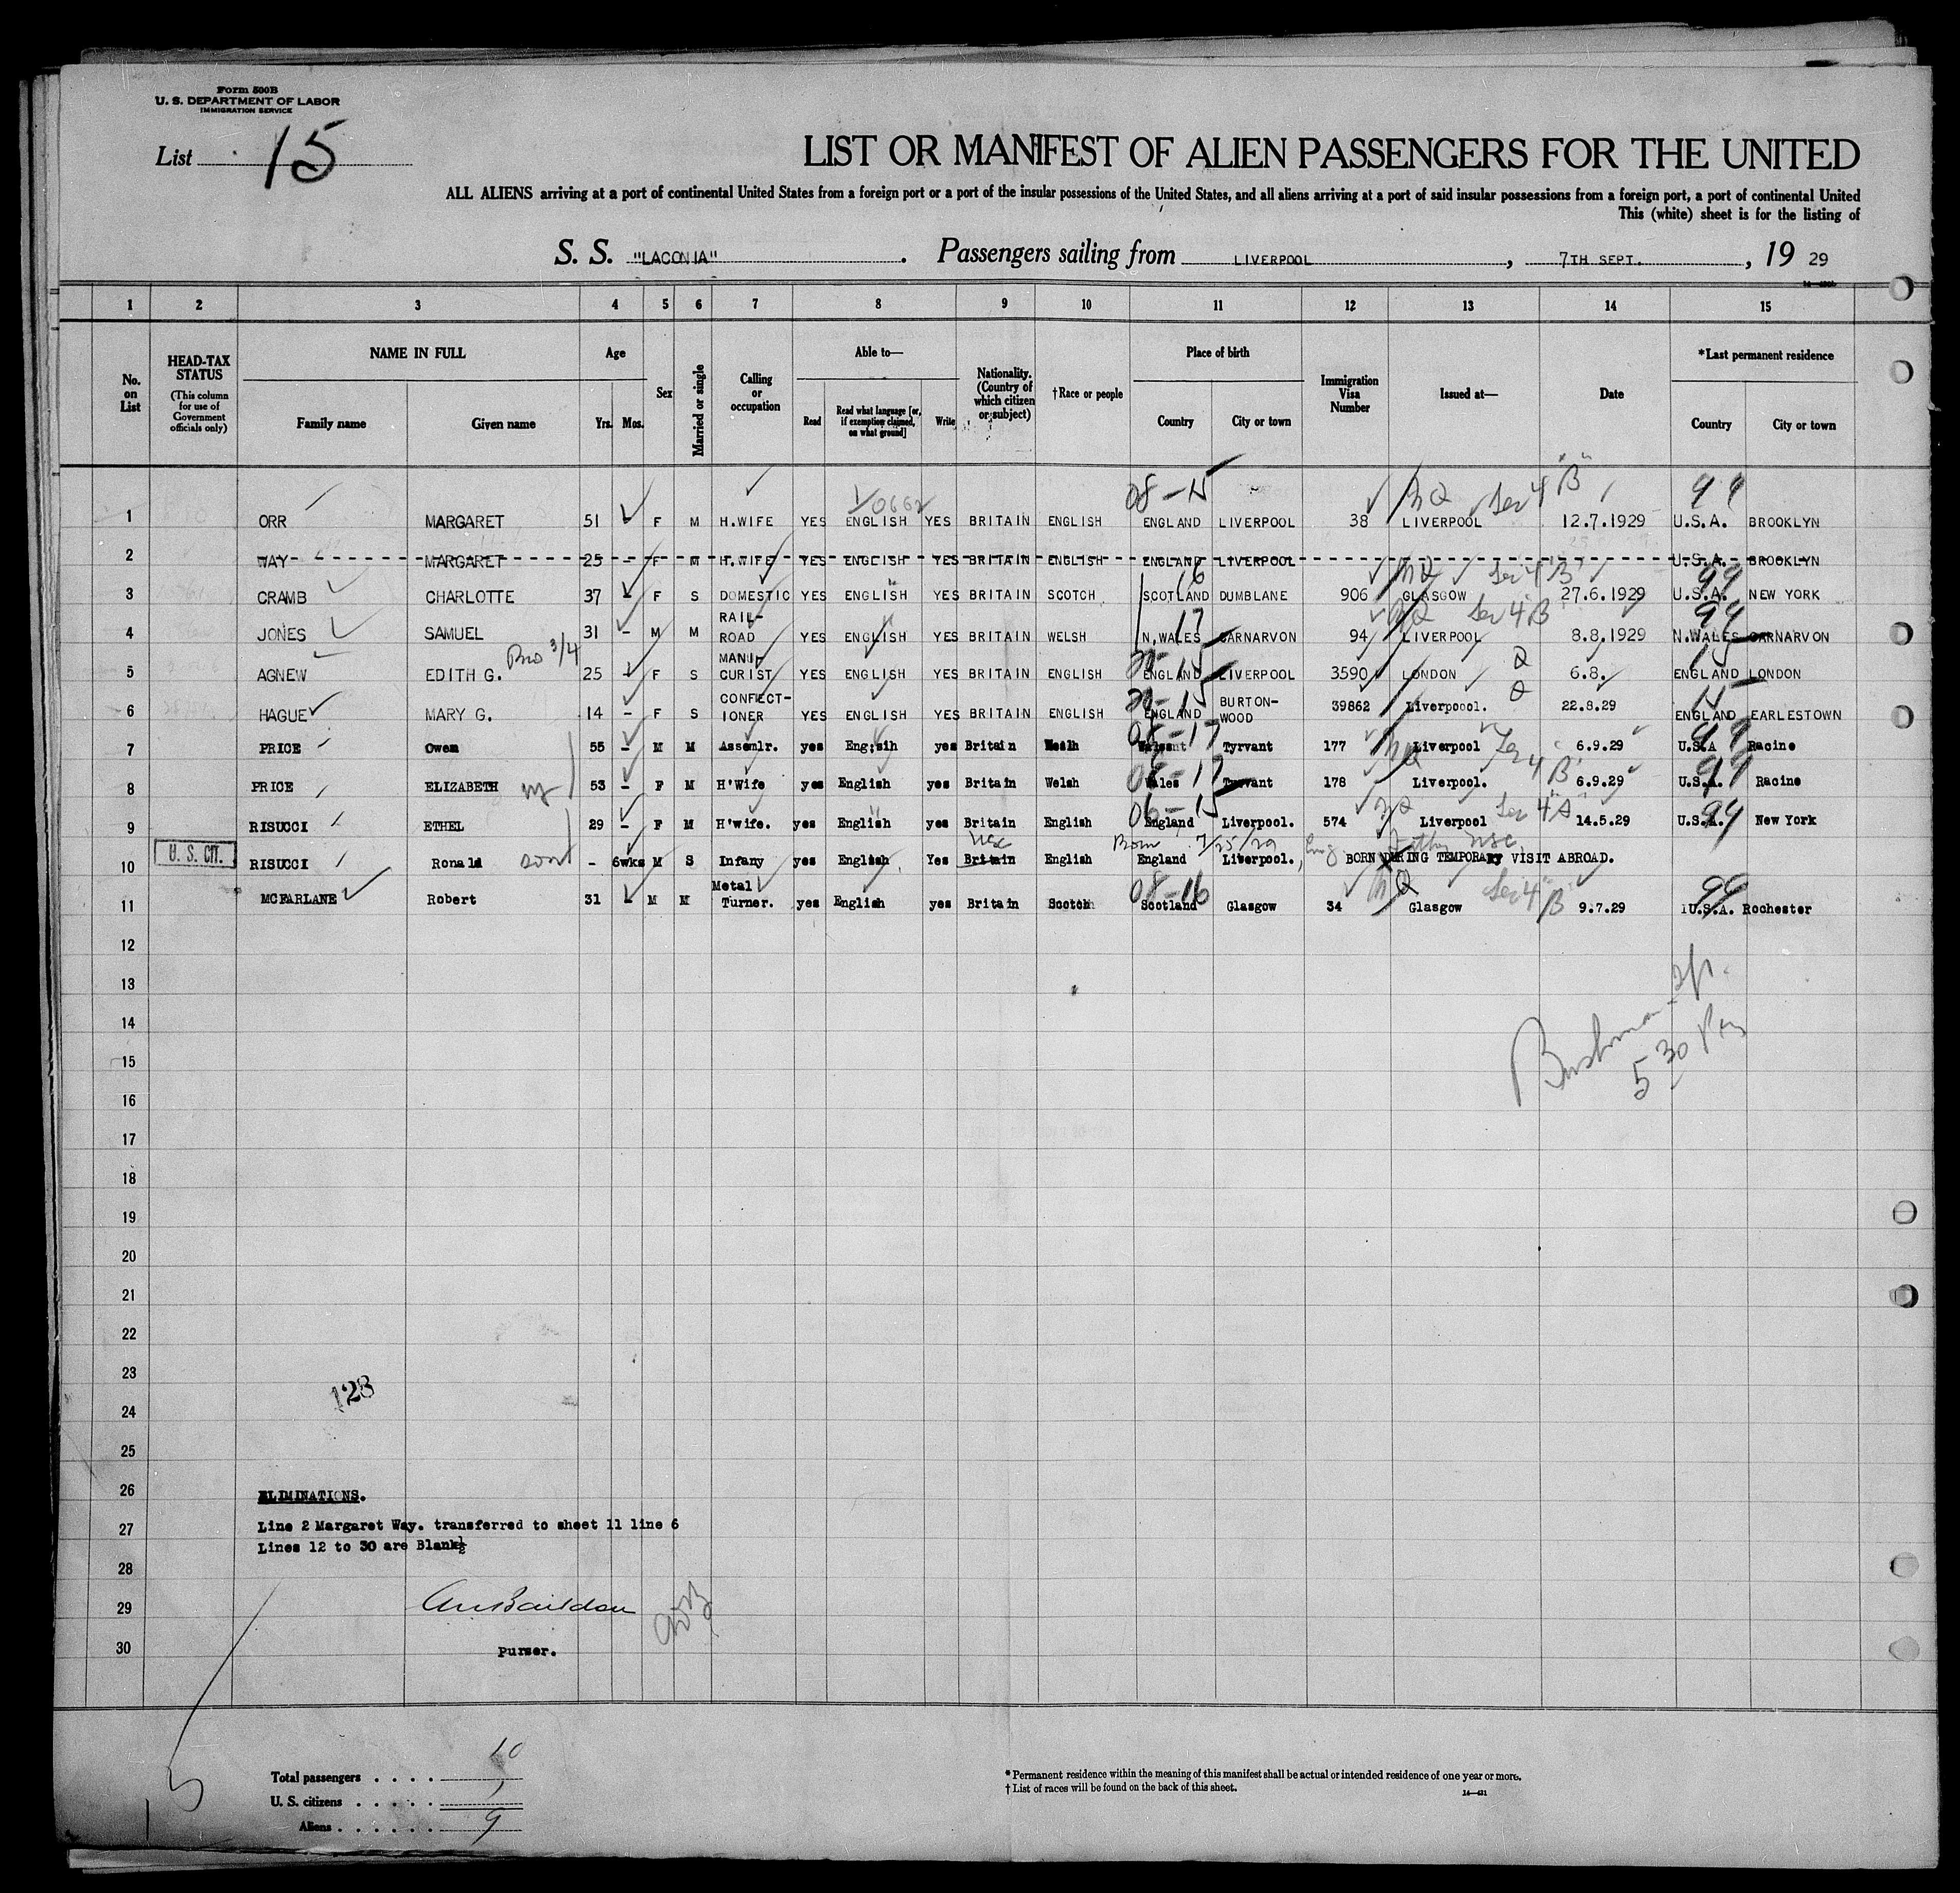 Form 500B
U. S. DEPARTMENT OF LABOR
IMMIGRATION SERVICE
List 15
LIST OR MANIFEST OF ALIEN PASSENGERS FOR THE UNITED
ALL ALIENS arriving at a port of continental United States from a foreign port or a port of the insular possessions of the United States, and all aliens arriving at a port of said insular possessions from a foreign port, a port of continental United
This (white) sheet is for the listing of
S. S. "LACONIA". Passengers sailing from LIVERPOOL, 7TH SEPT., 19 29
1 2 3 4 5 6 7 8 9 10 11 12 13 14 15
No. on List
HEAD-TAX STATUS (This column for use of Government officials only)
NAME IN FULL Family name Given name
Age Yrs. Mos.
Sex
Married or single
Calling or occupation
Able to— Read Read what language [or, if exemption claimed, on what ground] Write
Nationality. (Country of which citizen or subject)
†Race or people
Place of birth Country City or town
Immigration Visa Number
Issued at—
Date
*Last permanent residence Country City or town
08-15 10662 Sec 4 "B" 99
1 ORR MARGARET 51 F M H.WIFE YES ENGLISH YES BRITAIN ENGLISH ENGLAND LIVERPOOL 38 LIVERPOOL 12.7.1929 U.S.A. BROOKLYN
2 WAY MARGARET 25 - F M H.WIFE YES ENGLISH YES BRITAIN ENGLISH ENGLAND LIVERPOOL U.S.A. BROOKLYN
16 NQ Sec 4 "B" 99
3 CRAMB CHARLOTTE 37 F S DOMESTIC YES ENGLISH YES BRITAIN SCOTCH SCOTLAND DUMBLANE 906 GLASGOW 27.6.1929 U.S.A. NEW YORK
17 NQ Sec 4 B 99
4 JONES SAMUEL 31 - M M RAIL-ROAD YES ENGLISH YES BRITAIN WELSH N.WALES CARNARVON 94 LIVERPOOL 8.8.1929 N.WALES CARNARVON
15 Q 15
5 AGNEW EDITH G. 25 F S MANI-CURIST YES ENGLISH YES BRITAIN ENGLISH ENGLAND LIVERPOOL 3590 LONDON 6.8. ENGLAND LONDON
15 Q 15
6 HAGUE MARY G. 14 - F S CONFECT-IONER YES ENGLISH YES BRITAIN ENGLISH ENGLAND BURTON-WOOD 39862 Liverpoool. 22.8.29 ENGLAND EARLESTOWN
08-17 99
7 PRICE Owen 55 - M M Assemlr. yes Eng;sih yes Britain Tyrvant 177 Liverpool Sec 4 B 6.9.29 U.S.A Racine
08-17 99
8 PRICE ELIZABETH 53 - F M H'Wife yes English yes Britain Welsh Wales Tyrvant 178 Liverpool. 6.9.29 U.S.A. Racine
06-15 NQ Sec 4 "A" 99
9 RISUCCI ETHEL 29 - F M H'wife. yes English yes Britain English England Liverpool. 574 Liverpool 14.5.29 U.S.A. New York
USC Born 7/25/29 Eng. Father USC
U. S. CIT.
10 RISUCCI Ronald son - 6wks M S Infany yes English Yes Britain English England Liverpool. BORN DURING TEMPORARY VISIT ABROAD.
08-16 NQ Sec 4 "B" 99
11 MCFARLANE Robert 31 M M Metal Turner. yes English yes Britain Scotch Scotland Glasgow 34 Glasgow 9.7.29 U.S.A. Rochester
12
13
14
15
5 30
16
17
18
19
20
21
22
23
128
24
25
26 ELIMINATIONS.
27 Line 2 Margaret Way. transferred to sheet 11 line 6
Lines 12 to 30 are Blank
28
29
30 Purser.
Total passengers . . . . 10
U. S. citizens . . . . . 1
Aliens . . . . . . 9
* Permanent residence within the meaning of this manifest shall be actual or intended residence of one year or more.
† List of races will be found on the back of this sheet.
14—431